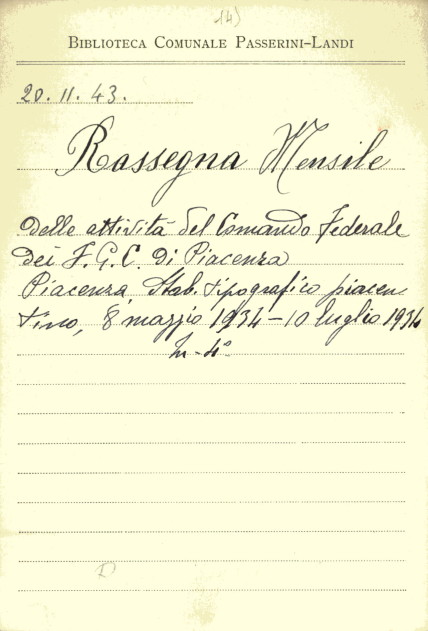 14)
BIBLIOTECA COMUNALE PASSERINI-LANDI
20. 11. 43.
Rassegna Mensile
delle attività del Comando Federale
dei F. G. C. di Piacenza
Piacenza, Stab. tipografico piacen
tino, 8 maggio 1934 – 10 luglio 1934
In-4°